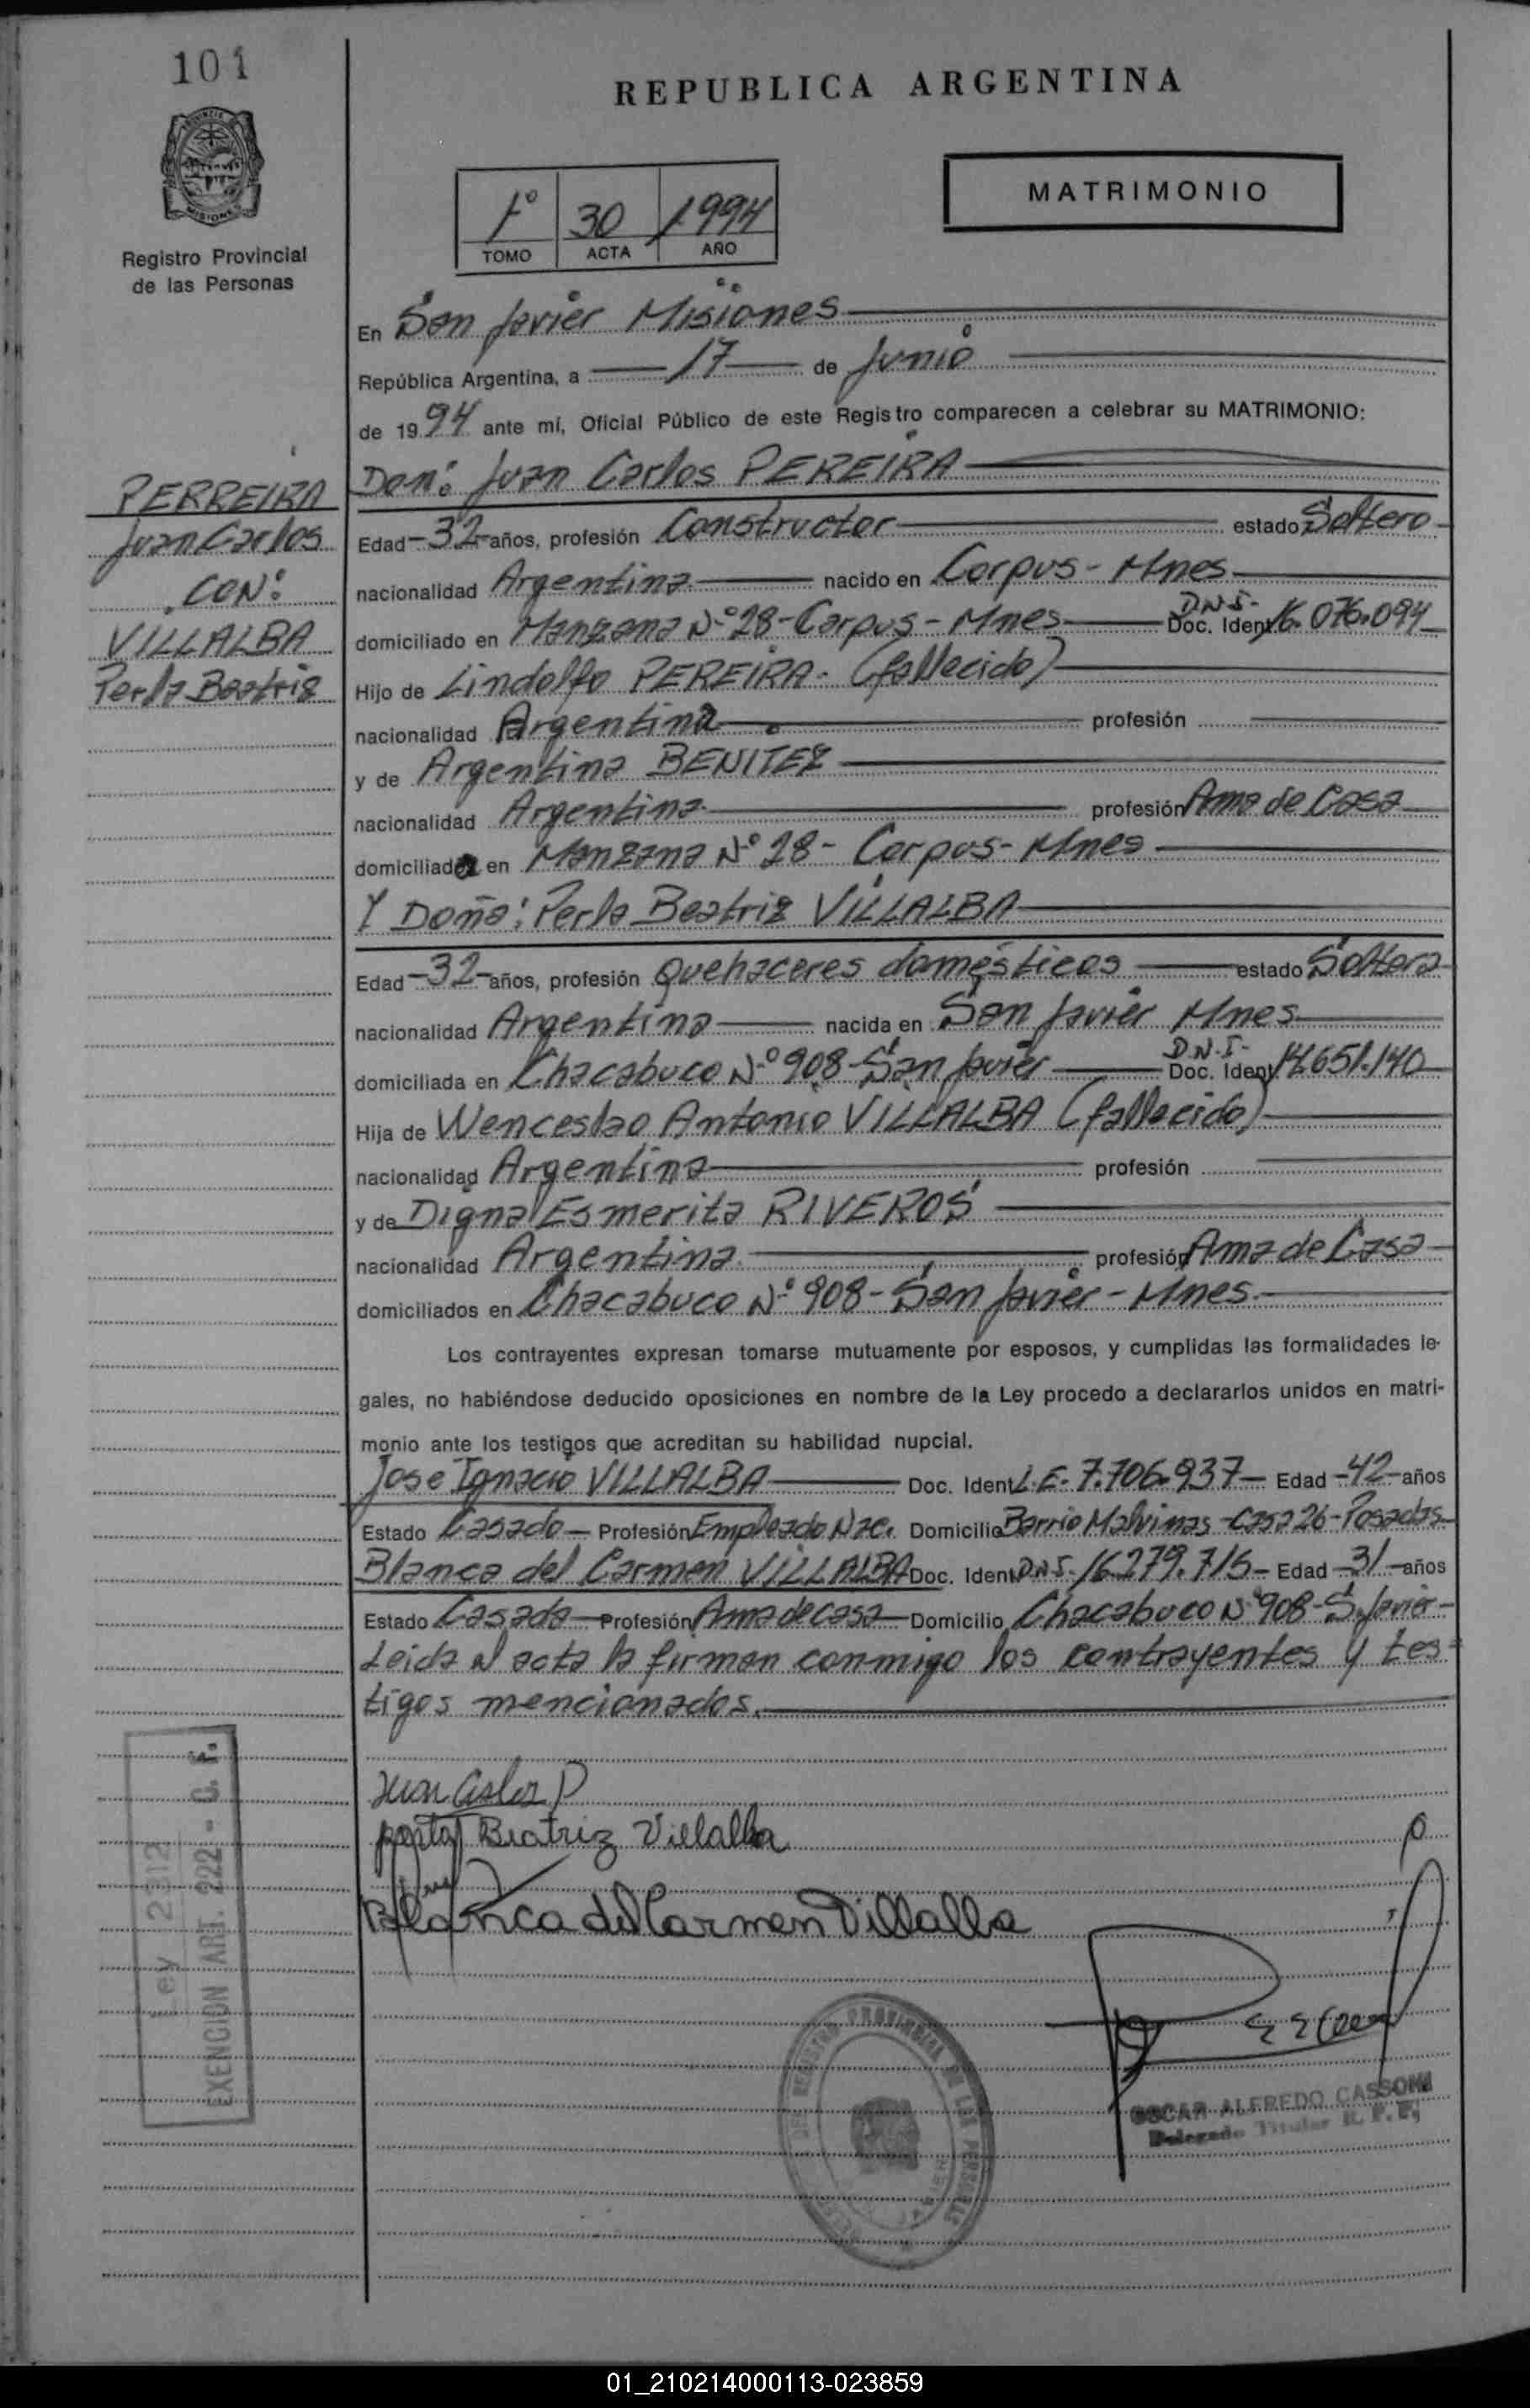 101
REPUBLICA ARGENTINA
MATRIMONIO
1º 30 1994
TOMO ACTA AÑO
Registro Provincial
de las Personas
En San Javier Misiones
República Argentina, a 17 de Junio
de 1994 ante mí, Oficial Público de este Registro comparecen a celebrar su MATRIMONIO:
PERREIRA
Juan Carlos
CON:
VILLALBA
Perla Beatriz
Don: Juan Carlos PEREIRA
Edad -32- años, profesión Constructor estado Soltero
nacionalidad Argentina nacido en Corpus - Mnes
domiciliado en Manzana Nº 28 - Corpus - Mnes D.N.I. Doc. Ident. 16.076.094
Hijo de Lindolfo PEREIRA - (fallecido)
nacionalidad Argentina profesión
y de Argentina BENITEZ
nacionalidad Argentina profesión Ama de Casa
domiciliada en Manzana Nº 28 - Corpus - Mnes
Y Doña: Perla Beatriz VILLALBA
Edad -32- años, profesión Quehaceres domésticos estado Soltera
nacionalidad Argentina nacida en San Javier Mnes
domiciliada en Chacabuco Nº 908 - San Javier D.N.I. Doc. Ident. 14.651.140
Hija de Wenceslao Antonio VILLALBA (fallecido)
nacionalidad Argentina profesión
y de Digna Esmerita RIVEROS
nacionalidad Argentina profesión Ama de Casa
domiciliados en Chacabuco Nº 908 - San Javier - Mnes.
Los contrayentes expresan tomarse mutuamente por esposos, y cumplidas las formalidades le-
gales, no habiéndose deducido oposiciones en nombre de la Ley procedo a declararlos unidos en matri-
monio ante los testigos que acreditan su habilidad nupcial.
Jose Ignacio VILLALBA Doc. Ident. L.E. 7.706.937 - Edad -42- años
Estado Casado - Profesión Empleado Nac. Domicilio Barrio Malvinas - Casa 26 - Posadas
Blanca del Carmen VILLALBA Doc. Ident. D.N.I. 16.279.715 - Edad -31- años
Estado Casada - Profesión Ama de casa - Domicilio Chacabuco Nº 908 - S. Javier -
Leida el acta la firman conmigo los contrayentes y tes-
tigos mencionados.
Juan Carlos P
Beatriz Villalba
Blanca del Carmen Villalba
Ley 2312
EXENCION ART. 222 - C. F.
REGISTRO PROVINCIAL DE LAS PERSONAS
OSCAR ALFREDO CASSONI
Delegado Titular R. P. P.
01_210214000113-023859